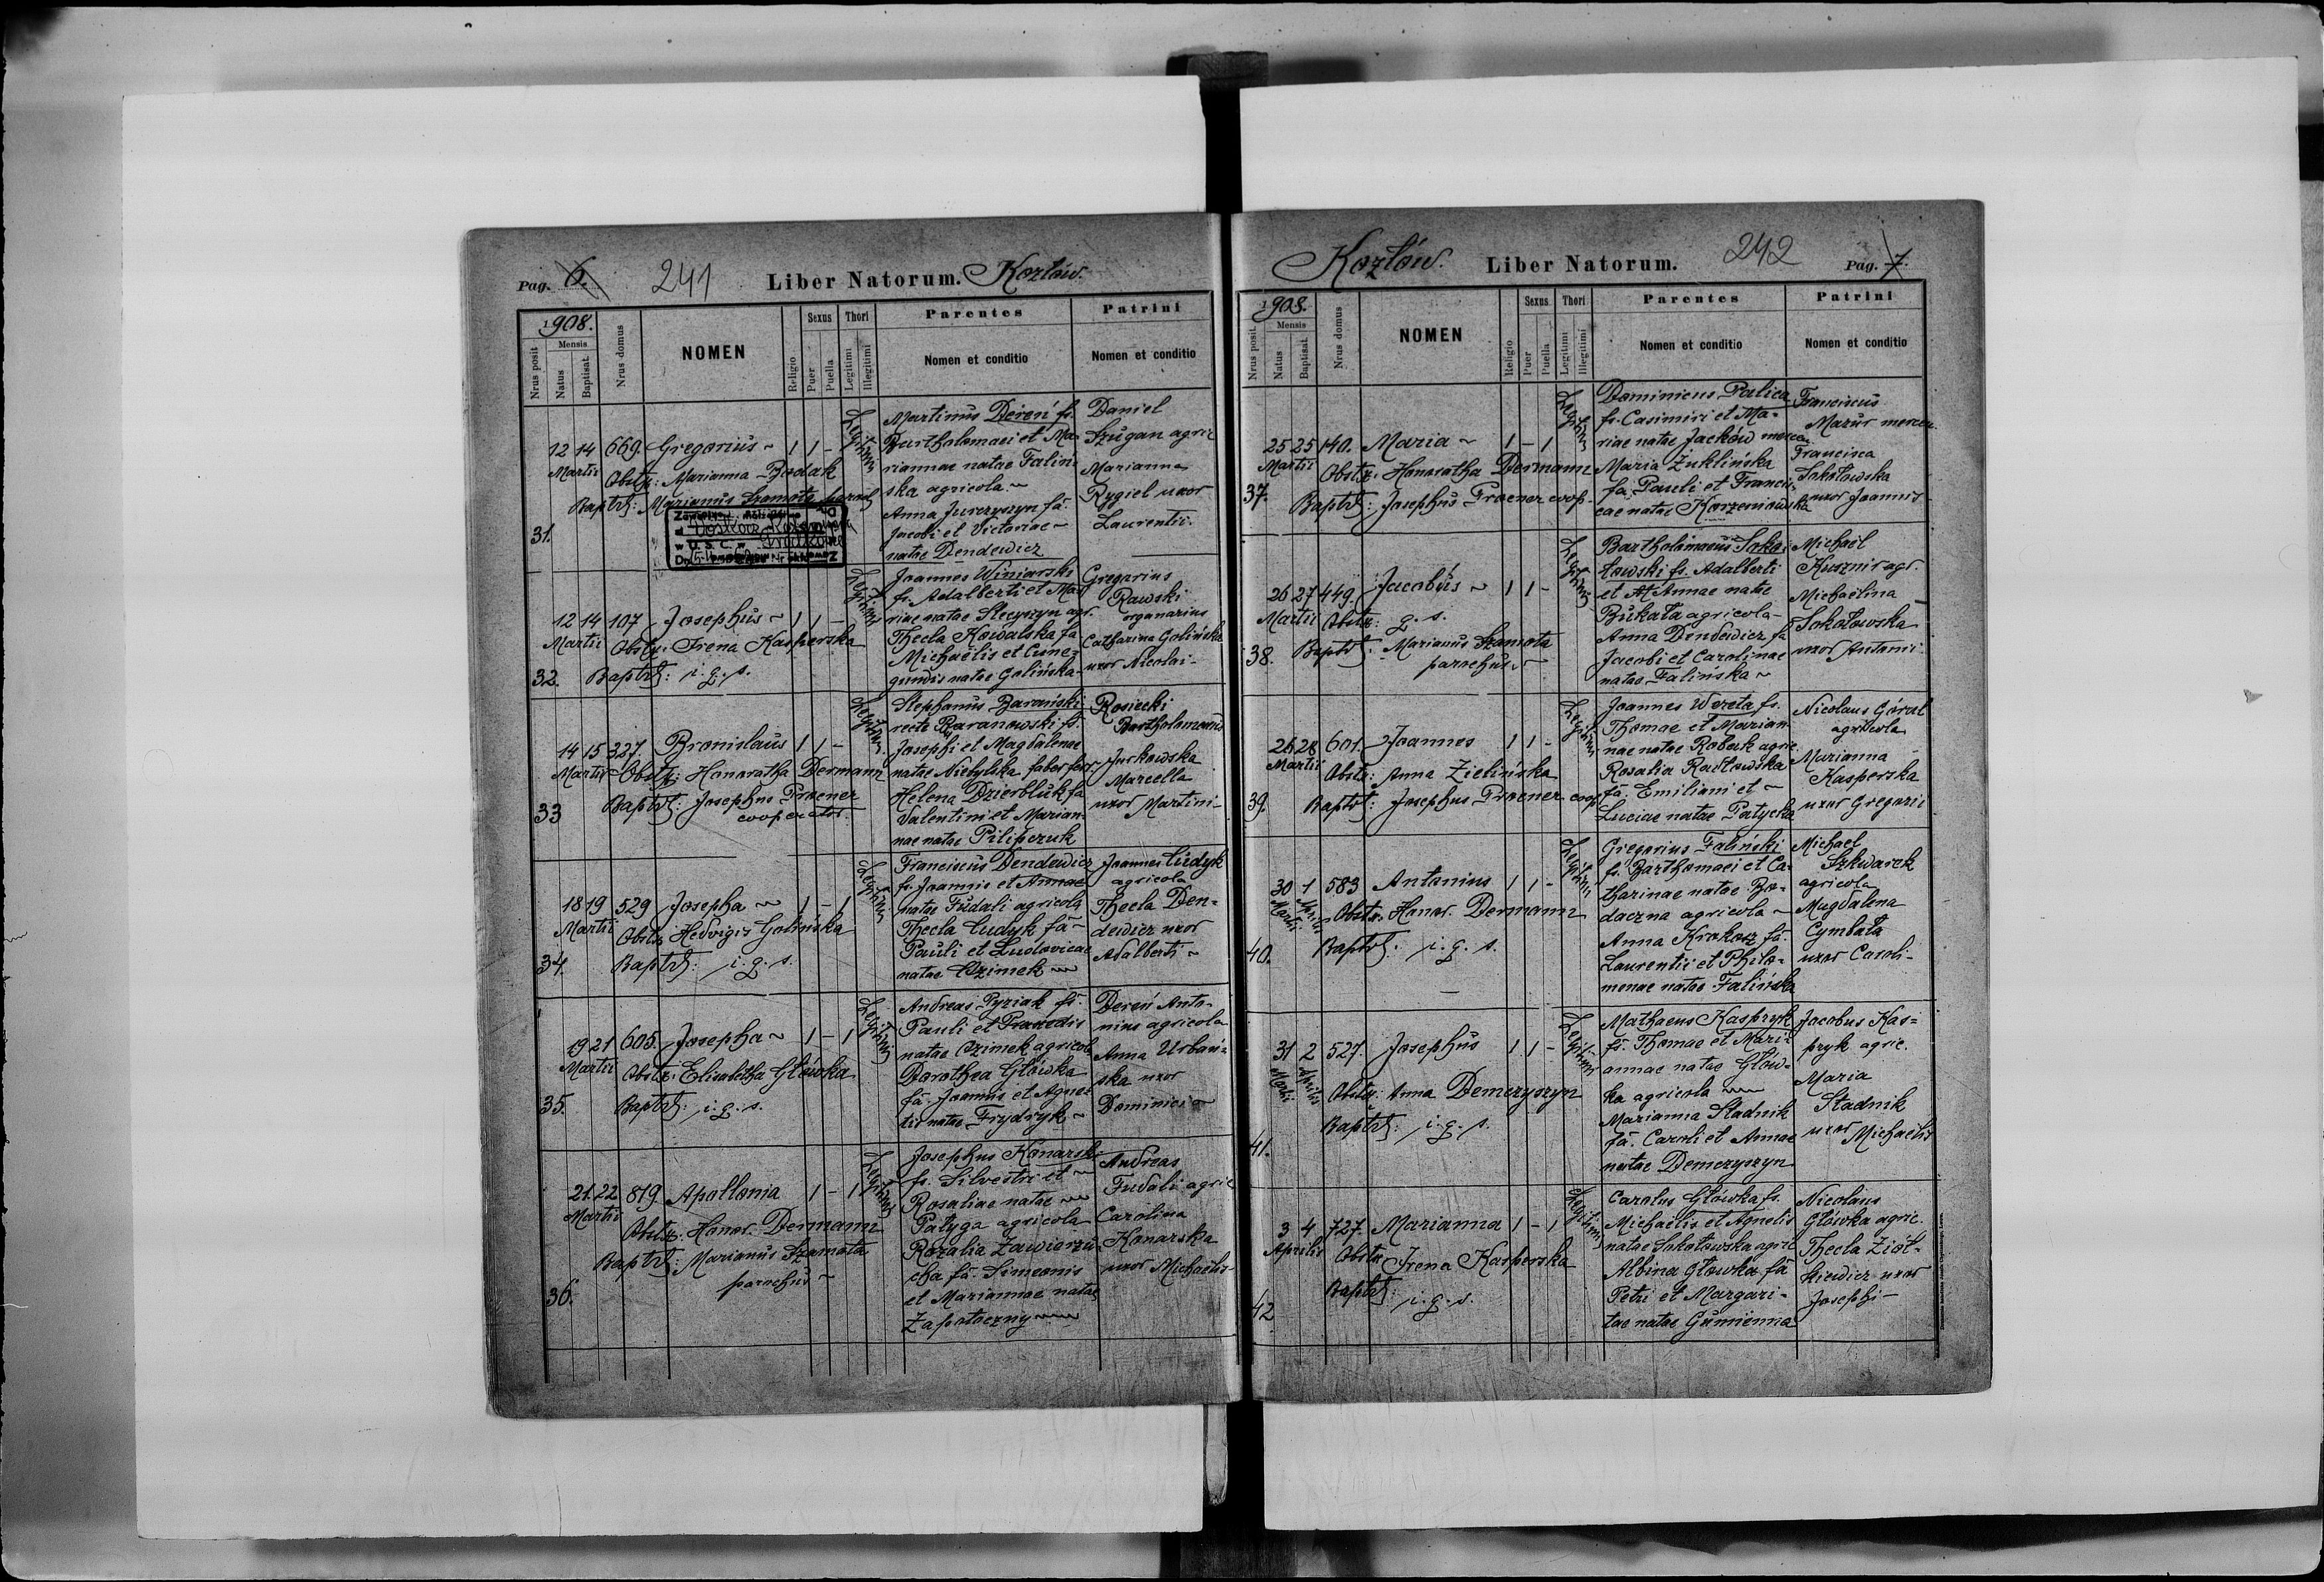 Pag. 6. 241 Liber Natorum. Kozłów.
1908.
Nrus posit
Mensis
Natus
Baptisat.
Nrus domus
NOMEN
Religio
Sexus
Puer
Puella
Thori
Legitimi
Illegitimi
Parentes
Nomen et conditio
Patrini
Nomen et conditio
31.
12 14 669. Gregorius ~ 1 1 -
Martii
Obstx: Marianna Bodak
Baptsζ: Marianus Szamota
Legitimi
Martinus Dereń fs.
Bartholomaei et Ma-
riannae natae Faliń-
ska agricola ~
Anna Jurczyszyn fa.
Jacobi et Victoriae ~
natae Dendewicz
Daniel
Szugan agric
Marianna
Rygiel uxor
Laurentii.
32.
12 14 107 Josephus ~ 1 1 -
Martii Obstx: Irena Kasperska
Baptsζ: i. q. s.
Legitimi
Joannes Winiarski
fs. Adalberti et Ma-
riae natae Slecyszyn agr.
Thecla Kowalska fa
Michaëlis et Cune-
gundis natae Golińska-
Gregorius
Rawski
organarius
Catharina Golińska
uxor Nicolai-
33
14 15 327. Bronislaus 1 1 -
Martii Obstx: Honoratha Dermann
Baptsζ: Josephus Procner
cooperator.
Legitimi.
Stephanus Barański
recte Baranowski fs.
Josephi et Magdalenae
natae Niebylska faber ferr.
Helena Dzierbluk fa
Valentini et Marian-
nae natae Pilipczuk
Rosiecki
Bartholomaeus
Jurkowska
Marcella
uxor Martini-
34.
18 19 529 Josepha ~ 1 - 1
Martii
Obstx Hedvigis Golińska
Baptsζ: i. q. s.
Legitimi
Franciscus Dendewicz
fs. Joannis et Annae
natae Fudali agricola
Thecla Ludyk fa-
Pauli et Ludovicae
natae Ozimek ~
Joannes Ludyk
agricola
Thecla Den-
dewicz uxor
Adalberti ~
35.
19 21 605. Josepha ~ 1 - 1
Martii
Obstx: Elisabetha Główka
Baptsζ: i. q. s.
Legitimi
Andreas Pyziak fs.
Pauli et Praxedis
natae Ozimek agricola
Dorothea Główka
fa. Joannis et Agne-
tis natae Frydryk ~
Dereń Anto-
nius agricola
Anna Urbań-
ska uxor
Dominici ~
36.
21. 22 819. Apollonia 1 - 1
Martii
Obstx. Honor. Dermann
Baptsζ: Marianus Szamota
parochus ~
Legitimi
Josephus Konarski
fs. Silvestri et ~
Rosaliae natae ~
Patyga agricola
Rozalia Zawierzu-
cha fa. Simeonis
et Mariannae natae
Zapotoczny ~
Andreas
Fudali agric
Carolina
Konarska
uxor Michaëlis-
Kozłów. Liber Natorum. 242 Pag. 7.
1908.
Nrus posit.
Mensis
Natus
Baptisat.
Nrus domus
NOMEN
Religio
Sexus
Puer
Puella
Thori
Legitimi
Illegitimi
Parentes
Nomen et conditio
Patrini
Nomen et conditio
37.
25 25 140. Maria ~ 1 - 1
Martii
Obstx: Honoratha Dermann
Baptsζ: Josephus Procner coop.
Legitimi
Dominicus Palica
fs. Casimiri et Ma-
riae natae Jacków mercen.
Maria Żuklińska
fa. Pauli et Francis-
cae natae Korzeniowska
Franciscus
Mazur mercen.
Francisca
Sokołowska
uxor Joannis
38.
26 27 449. Jacobus ~ 1 1 -
Martii Obstx: q. s.
Baptsζ: Marianus Szamota
parochus ~
Legitimi
Bartholomaeus Soko-
łowski fs. Adalberti
et Annae natae
Bukata agricola -
Anna Dendewicz fa
Jacobi et Carolinae
natae Falińska ~
Michaël
Kusznir agr.
Michaëlina
Sokołowska
uxor Antoni-
39.
26 28 601. Joannes 1 1 -
Martii
Obstx: Anna Zielińska
Baptst: Josephus Procner coop
Legitimi
Joannes Wereta fs.
Thomae et Marian-
nae natae Roback agric.
Rosalia Radłowska
fa. Emiliani et ~
Luciae natae Patycka
Nicolaus Góral
agricola
Marianna
Kasperska
uxor Gregorii
40.
30 1 583 Antonius 1 1 -
Martii Aprilis
Obstx. Honor. Dermann
Baptsζ: i. q. s.
Legitimi
Gregorius Faliński
fs. Barthomaei et Ca-
tharinae natae Bo-
daczna agricola ~
Anna Krokosz fa.
Laurentii et Philo-
menae natae Falińska
Michael
Szkwarek
agricola
Magdalena
Cymbała
uxor Caroli-
41.
31 2 527. Josephus 1 1 -
Martii Aprilis
Obstx: Anna Demczyszyn
Baptsζ: i. q. s.
Legitimi
Mathaeus Kaspryk
fs. Thomae et Mari-
annae natae Głów-
ka agricola ~
Marianna Stadnik
fa. Caroli et Annae
natae Demczyszyn
Jacobus Kas-
pryk agric.
Maria
Stadnik
uxor Michaëlis
42
3 4 727. Marianna 1 - 1
Aprilis
Obstx Irena Kasperska
Baptsζ:
i. q. s.
Legitimi
Carolus Główka fs.
Michaëlis et Agnetis
natae Sokołowska agric
Albina Główka fa
Petri et Margari-
tae natae Gumienna
Nicolaus
Główka agric.
Thecla Ziół-
kiewicz uxor
Josephi -